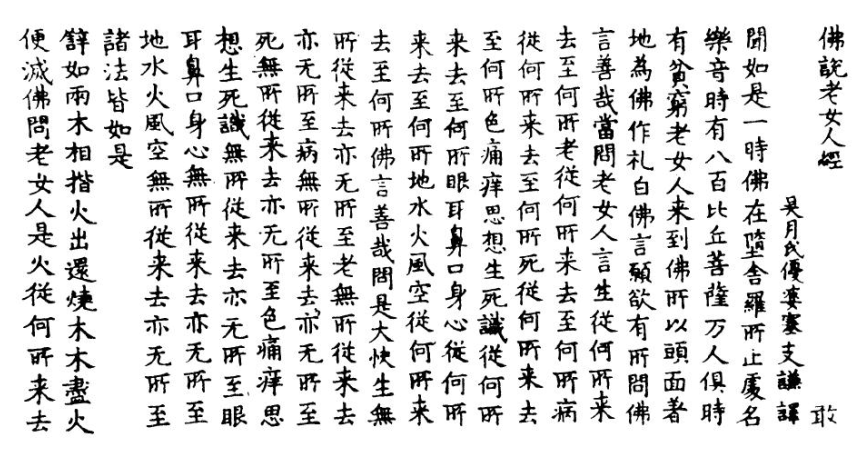 佛說老女人經 敢
吳月氏優婆塞支謙譯
聞如是一時佛在墮舍羅所止處名
樂音時有八百比丘菩薩万人俱時
有貧窮老女人来到佛所以頭面著
地為佛作礼白佛言願欲有所問佛
言善哉當問老女人言生從何所来
去至何所老從何所来去至何所病
從何所来去至何所死從何所来去
至何所色痛痒思想生死識從何所
来去至何所眼耳鼻口身心從何所
来去至何所地水火風空從何所来
去至何所佛言善哉問是大快生無
所從来去亦无所至老無所從来去
亦无所至病無所從来去亦无所至
死無所從来去亦无所至色痛痒思
想生死識無所從来去亦无所至眼
耳鼻口身心無所從来去亦无所至
地水火風空無所從来去亦无所至
諸法皆如是
譬如兩木相揩火出還燒木木盡火
便滅佛問老女人是火從何所来去